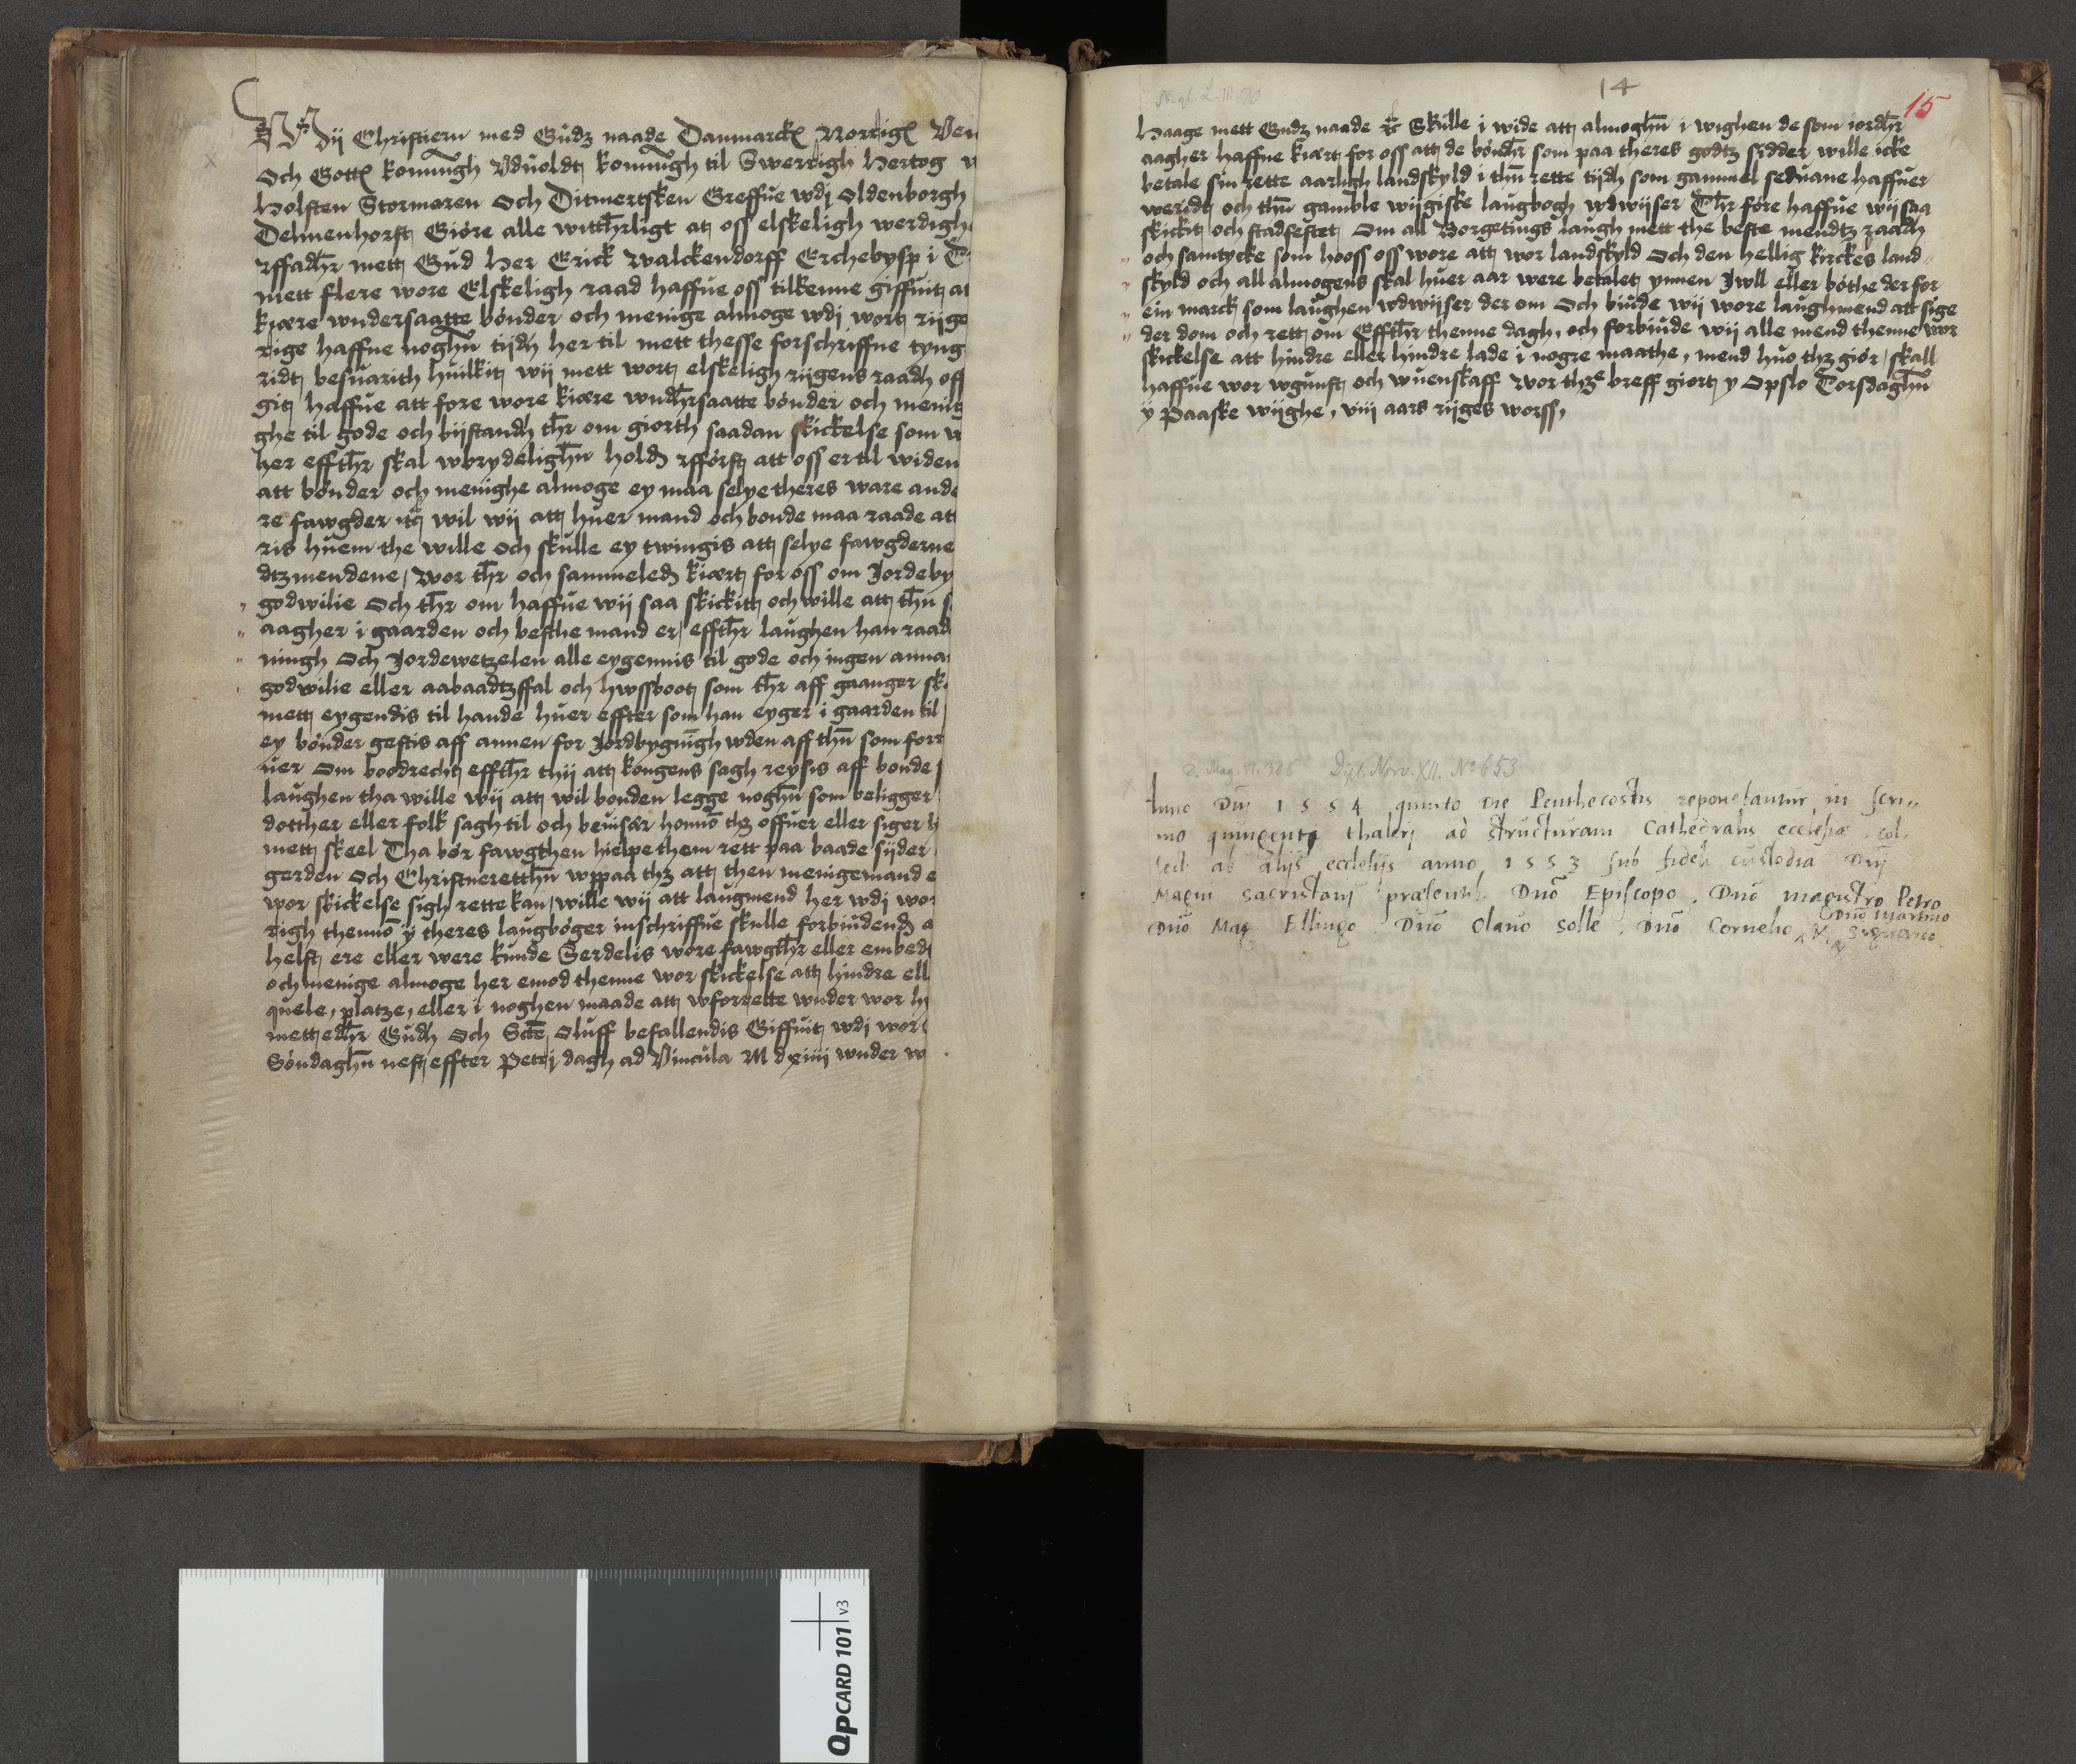 Wij Christiern med Gudz naade Danmarckꝭ Norrigꝭ Ven
Och Gottꝭ konningh Vduoldt konningh til Swerrigh Hertog
Holsten Stormaren Och Ditmertsken Greffue wdj Oldenborgh
Delmenhorst Gióre alle witthr̅ligt at oss elskeligh werdigh
rffadhr̅ mett Gud Her Erick Walckendorff Erchebysp i
mett flere wore Elskeligh raad haffue oss tilkenne giffuit at
kiære wndersaatte bónder och menige almoge wdj wort rijge
rige haffue noghn̅ tijdh her til mett thesse forschriffne tyng
ridt besuarith huilkit wij mett wort elskeligh rijgens raadh off
git haffue att fore wore kiære wndhr̅saatte bónder och menig
ghe til gode och bijstandh thr̅ om giorth saadan skickelse som
her effthr̅ skal wbrydelighn̅ hold rffórst att oss er til widen
att bónder och menighe almoge ey maa selye theres ware ande
re fawgder wil wij att huer mand och bonde maa raade att
ris huem the wille och skulle ey twingis att selye fawgderne
dtzmendene, Wor thr̅ och sammeled kiært for oss om Jordeby
godwilie Och thr̅ om haffue wij saa skickitt och wille att thn̅
aagher i gaarden och besthe mand er, effthr̅ laughen han raad
ningh Och Jordewetzelen alle eygennis til gode och ingen annar
godwilie eller aabaadtzffal och hwssboot som thr̅ aff gaanger sk
mett eygendis til hande huer effter som han eyger i gaarden til
ey bónder gestis aff annen for Jordbygningh wden aff thn̅ som forr
uer Om boodrecht effthr̅ thij att kongens sagh reysis aff bonde
laughen tha wille wij att wil bonden legge noghn̅ som beligger
dotther eller folk sagh til och beuisær honno̅ thz offuer eller siger
mett skeel Tha bór fawgthen hielpe them rett paa baade sijder
gerden Och Christneretthn̅ wppaa thz att then menigemand
wor skickelse sigh rette kan, wille wij att laugmend her wdj wor
righ thenno̅ ÿ theres laugbóger inschriffue skulle forbiudend a
helst ere eller were kunde Serdelis wore fawgthr̅ eller embed
och menige almoge her emod thenne wor skickelse att hindre ell
quele, platze, eller i noghen maade att wforrette wnder wor hy
mett edhr̅ Gudh Och Scte̅ Oluff befallendis Giffuit wdj wor
Sóndaghn̅ nest effter Petrj dagh ad Vincula M d xiiij wnder w
14
15
Haage mett Gudz naade ⁊c Skulle i wide att almoghn̅ i wighen de som iordhr̅
aagher haffue kiært for oss att de bóndhr̅ som paa theres godtz sidder wille icke
betale sin rette aarligh landskyld i thn̅ rette tijdh som gammel seduane haffuer
weridt och thn̅ gamble wijgiske laugbogh wdwijser Thr̅ fóre haffue wij saa
skickit och stadfestet Om all Borgetings laugh mett the beste mendtz raadh
och samtycke som hooss oss wore att wor landskyld Och den hellig kirckes land
skyld och all almogens skal huer aar were betalet ynnen Jwll eller bóthe der for
ein marck som laughen wdwijser der om Och biude wij wore laughmend att sige
der dom och rett om Effthr̅ thenne dagh, och forbiude wij alle mend thenne wor
skickelse att hindre eller hindre lade i nogre maathe, mend huo thz giór, skall
haffue wor wgunst och wuenskaff Wor thze breff giort y Opslo Torsdaghn̅
ÿ Paaske wijghe, viij aars rijges worss,
D. Mag. VI. 306 Dipl. Norv. XII. No 653
Anno Dnj 1554 quinto die Penthecostis reponebantur in scri
nio quingentj thalerj ad structuram Cathedralis ecclesiæ, col
lecti ab alijs ecclesijs anno 1553 sub fideli custodia Dnj
Magni Sacristanj præsentib. Dno̅ Episcopo. Dno̅ magistro Petro
Dno̅ Mag Ellingo. Dno̅ Olauo Solle. Dno̅ Cornelio
Dno̅ Martino